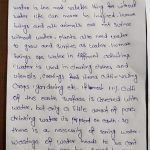 water is the most valuable thing for without
water life can never be imagined, human
beings and all animals can not live
without water. plants also need water
to grow and survive as water. human
beings use water in different activities
water is used in cleaning clothes and
utensils, cooking food items, cultivating
crops gardening etc. Almost 71%
of the earth surface is covered with
water, but only a little amount of pure
drinking water is present on earth so
there is a necessity of saving water
wastage of water needs to be cont